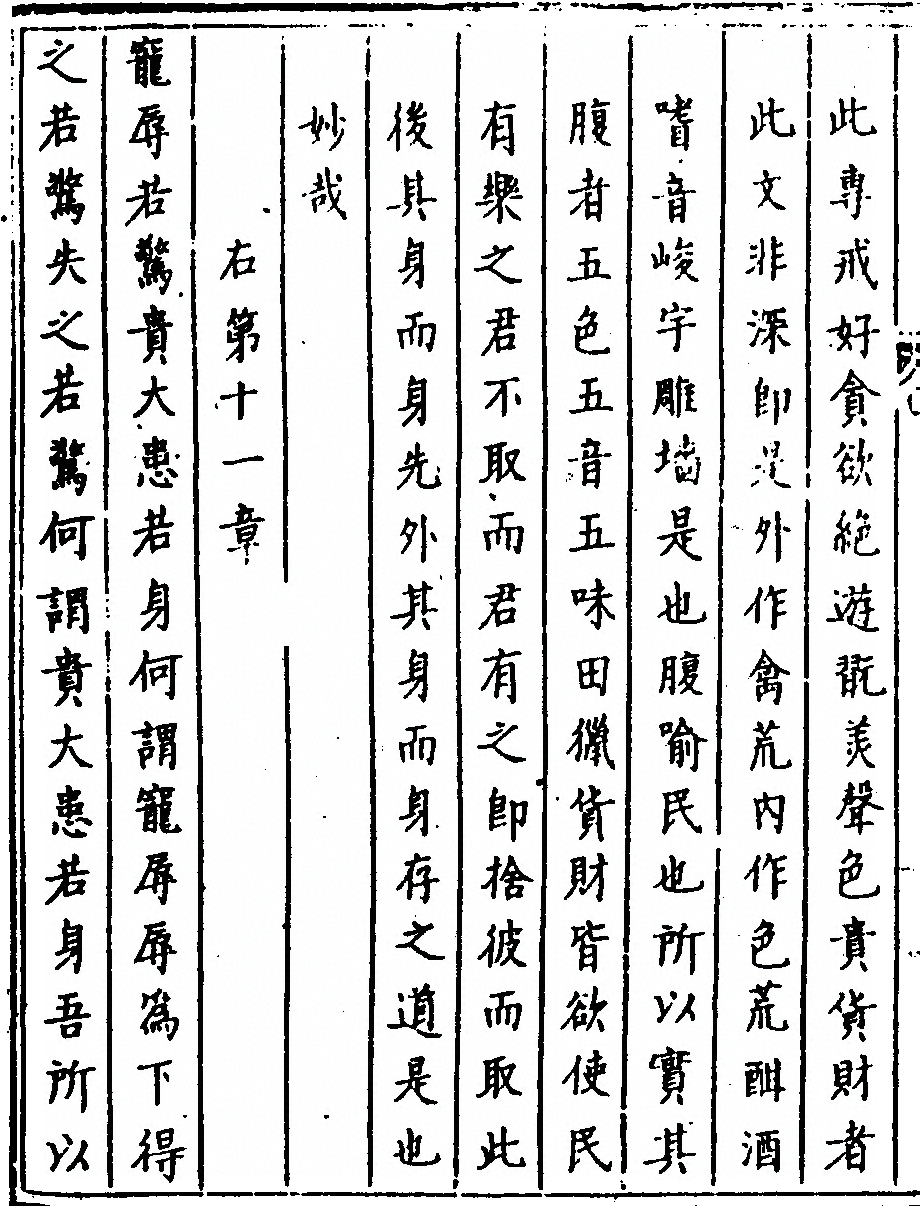 此專戒好貪欲絶遊翫羙聲色貴貨財者
此文非深即是外作禽荒内作色荒酣酒
嗜音峻宇雕墻是也腹喻民也所以實其
腹者五色五音五味田獵貨財皆欲使民
有樂之君不取而君有之即捨彼而取此
後其身而身先外其身而身存之道是也
妙哉
右第十一章
寵辱若驚貴大患若身何謂寵辱辱為下得
之若驚失之若驚何謂貴大患若身吾所以